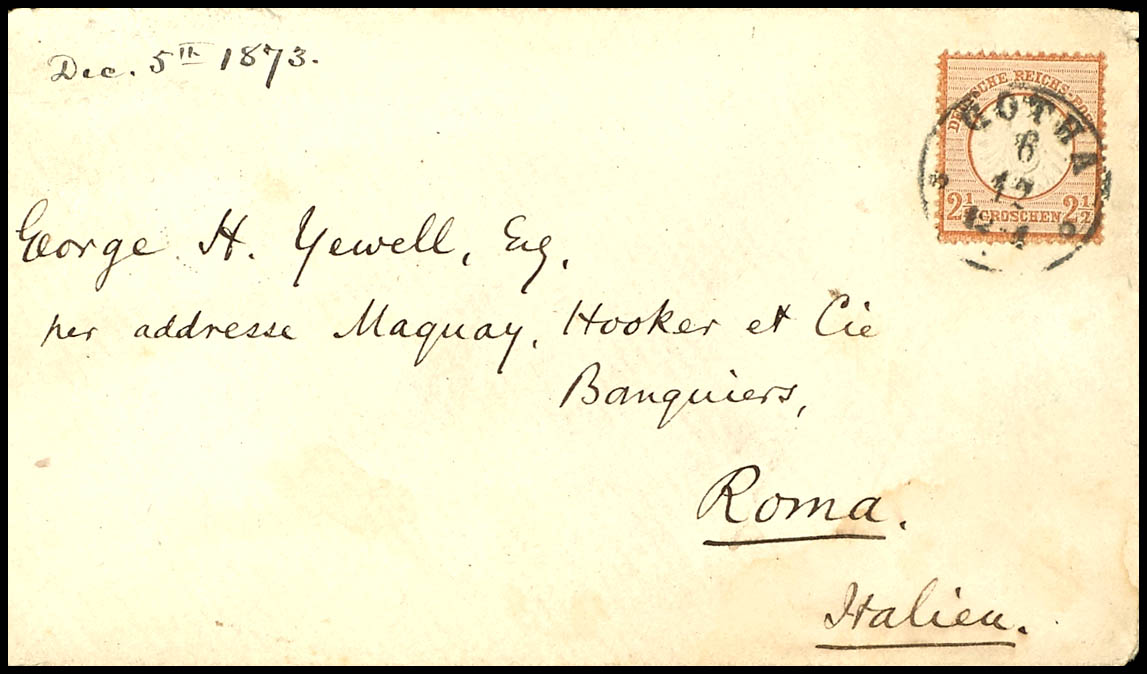 Dec. 5th 1873.
DEUTSCHE REICHS-POST
GOTHA
6
12
2½ GROSCHEN 2½
George H. Yewell, Esq.
per addresse Maquay, Hooker et Cie
Banquiers,
Roma.
Italien.